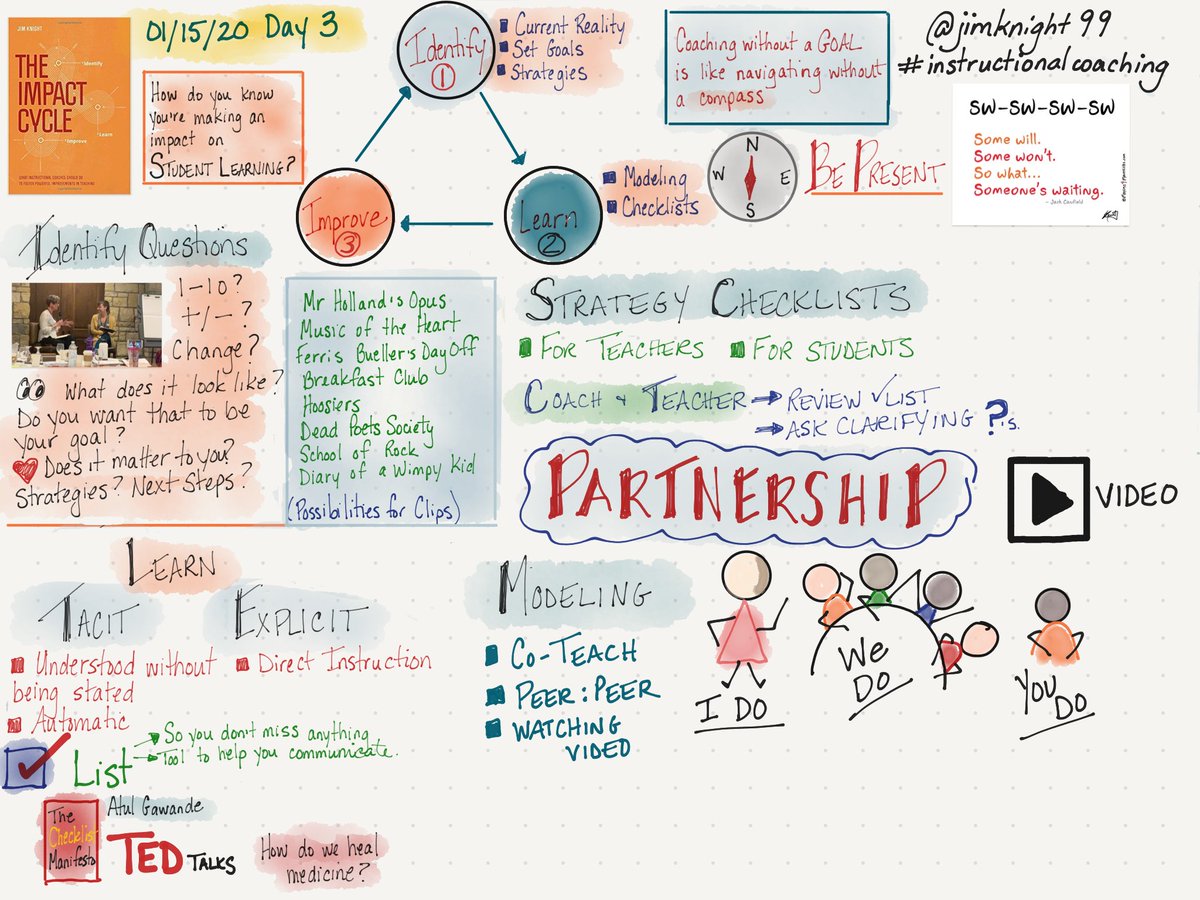 JIM KNIGHT
THE
IMPACT
CYCLE
Identify
Learn
Improve
WHAT INSTRUCTIONAL COACHES SHOULD DO
TO FOSTER POWERFUL IMPROVEMENTS IN TEACHING
01/15/20 Day 3
How do you know
you're making an
impact on
STUDENT LEARNING?
Identify
1
Current Reality
Set Goals
Strategies
Learn
2
Modeling
Checklists
Improve
3
Coaching without a GOAL
is like navigating without
a compass
N
W
E
S
BE PRESENT
@jimknight99
#instructionalcoaching
SW-SW-SW-SW
Some will.
Some won't.
So what...
Someone's waiting.
- Jack Canfield
IDENTIFY QUESTIONS
1-10?
+/- ?
Change?
What does it look like?
Do you want that to be
your goal?
Does it matter to you?
Strategies? Next Steps?
Mr Holland's Opus
Music of the Heart
Ferris Bueller's Day Off
Breakfast Club
Hoosiers
Dead Poets Society
School of Rock
Diary of a Wimpy Kid
(Possibilities for Clips)
STRATEGY CHECKLISTS
FOR TEACHERS
FOR STUDENTS
COACH + TEACHER → REVIEW ✓LIST
→ ASK CLARIFYING ?'s.
PARTNERSHIP
VIDEO
LEARN
TACIT
Understood without
being stated
Automatic
EXPLICIT
Direct Instruction
List
→ So you don't miss anything
→ Tool to help you communicate.
The
Checklist
Manifesto
Atul Gawande
TED TALKS
How do we heal
medicine?
MODELING
CO-TEACH
PEER:PEER
WATCHING
VIDEO
I DO
We
Do
You
Do